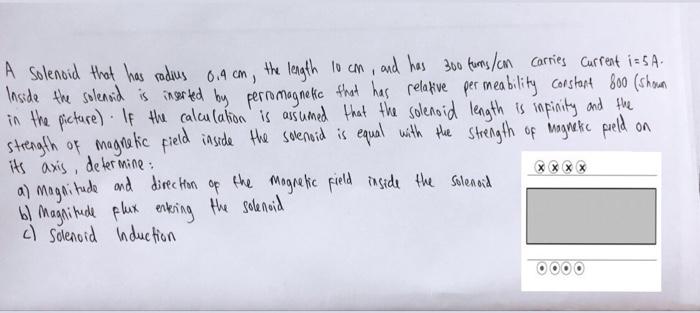 A Solenoid that has radius 0.4 cm, the length 10 cm, and has 300 turns/cm carries current i=5A.
Inside the solenoid is inserted by ferromagnetic that has relative permeability constant 800 (shown
in the picture). If the calculation is assumed that the solenoid length is infinity and the
strength of magnetic field inside the solenoid is equal with the strength of magnetic field on
its axis, determine:
a) Magnitude and direction of the Magnetic field inside the Solenoid
b) Magnitude flux entering the solenoid
c) Solenoid Induction